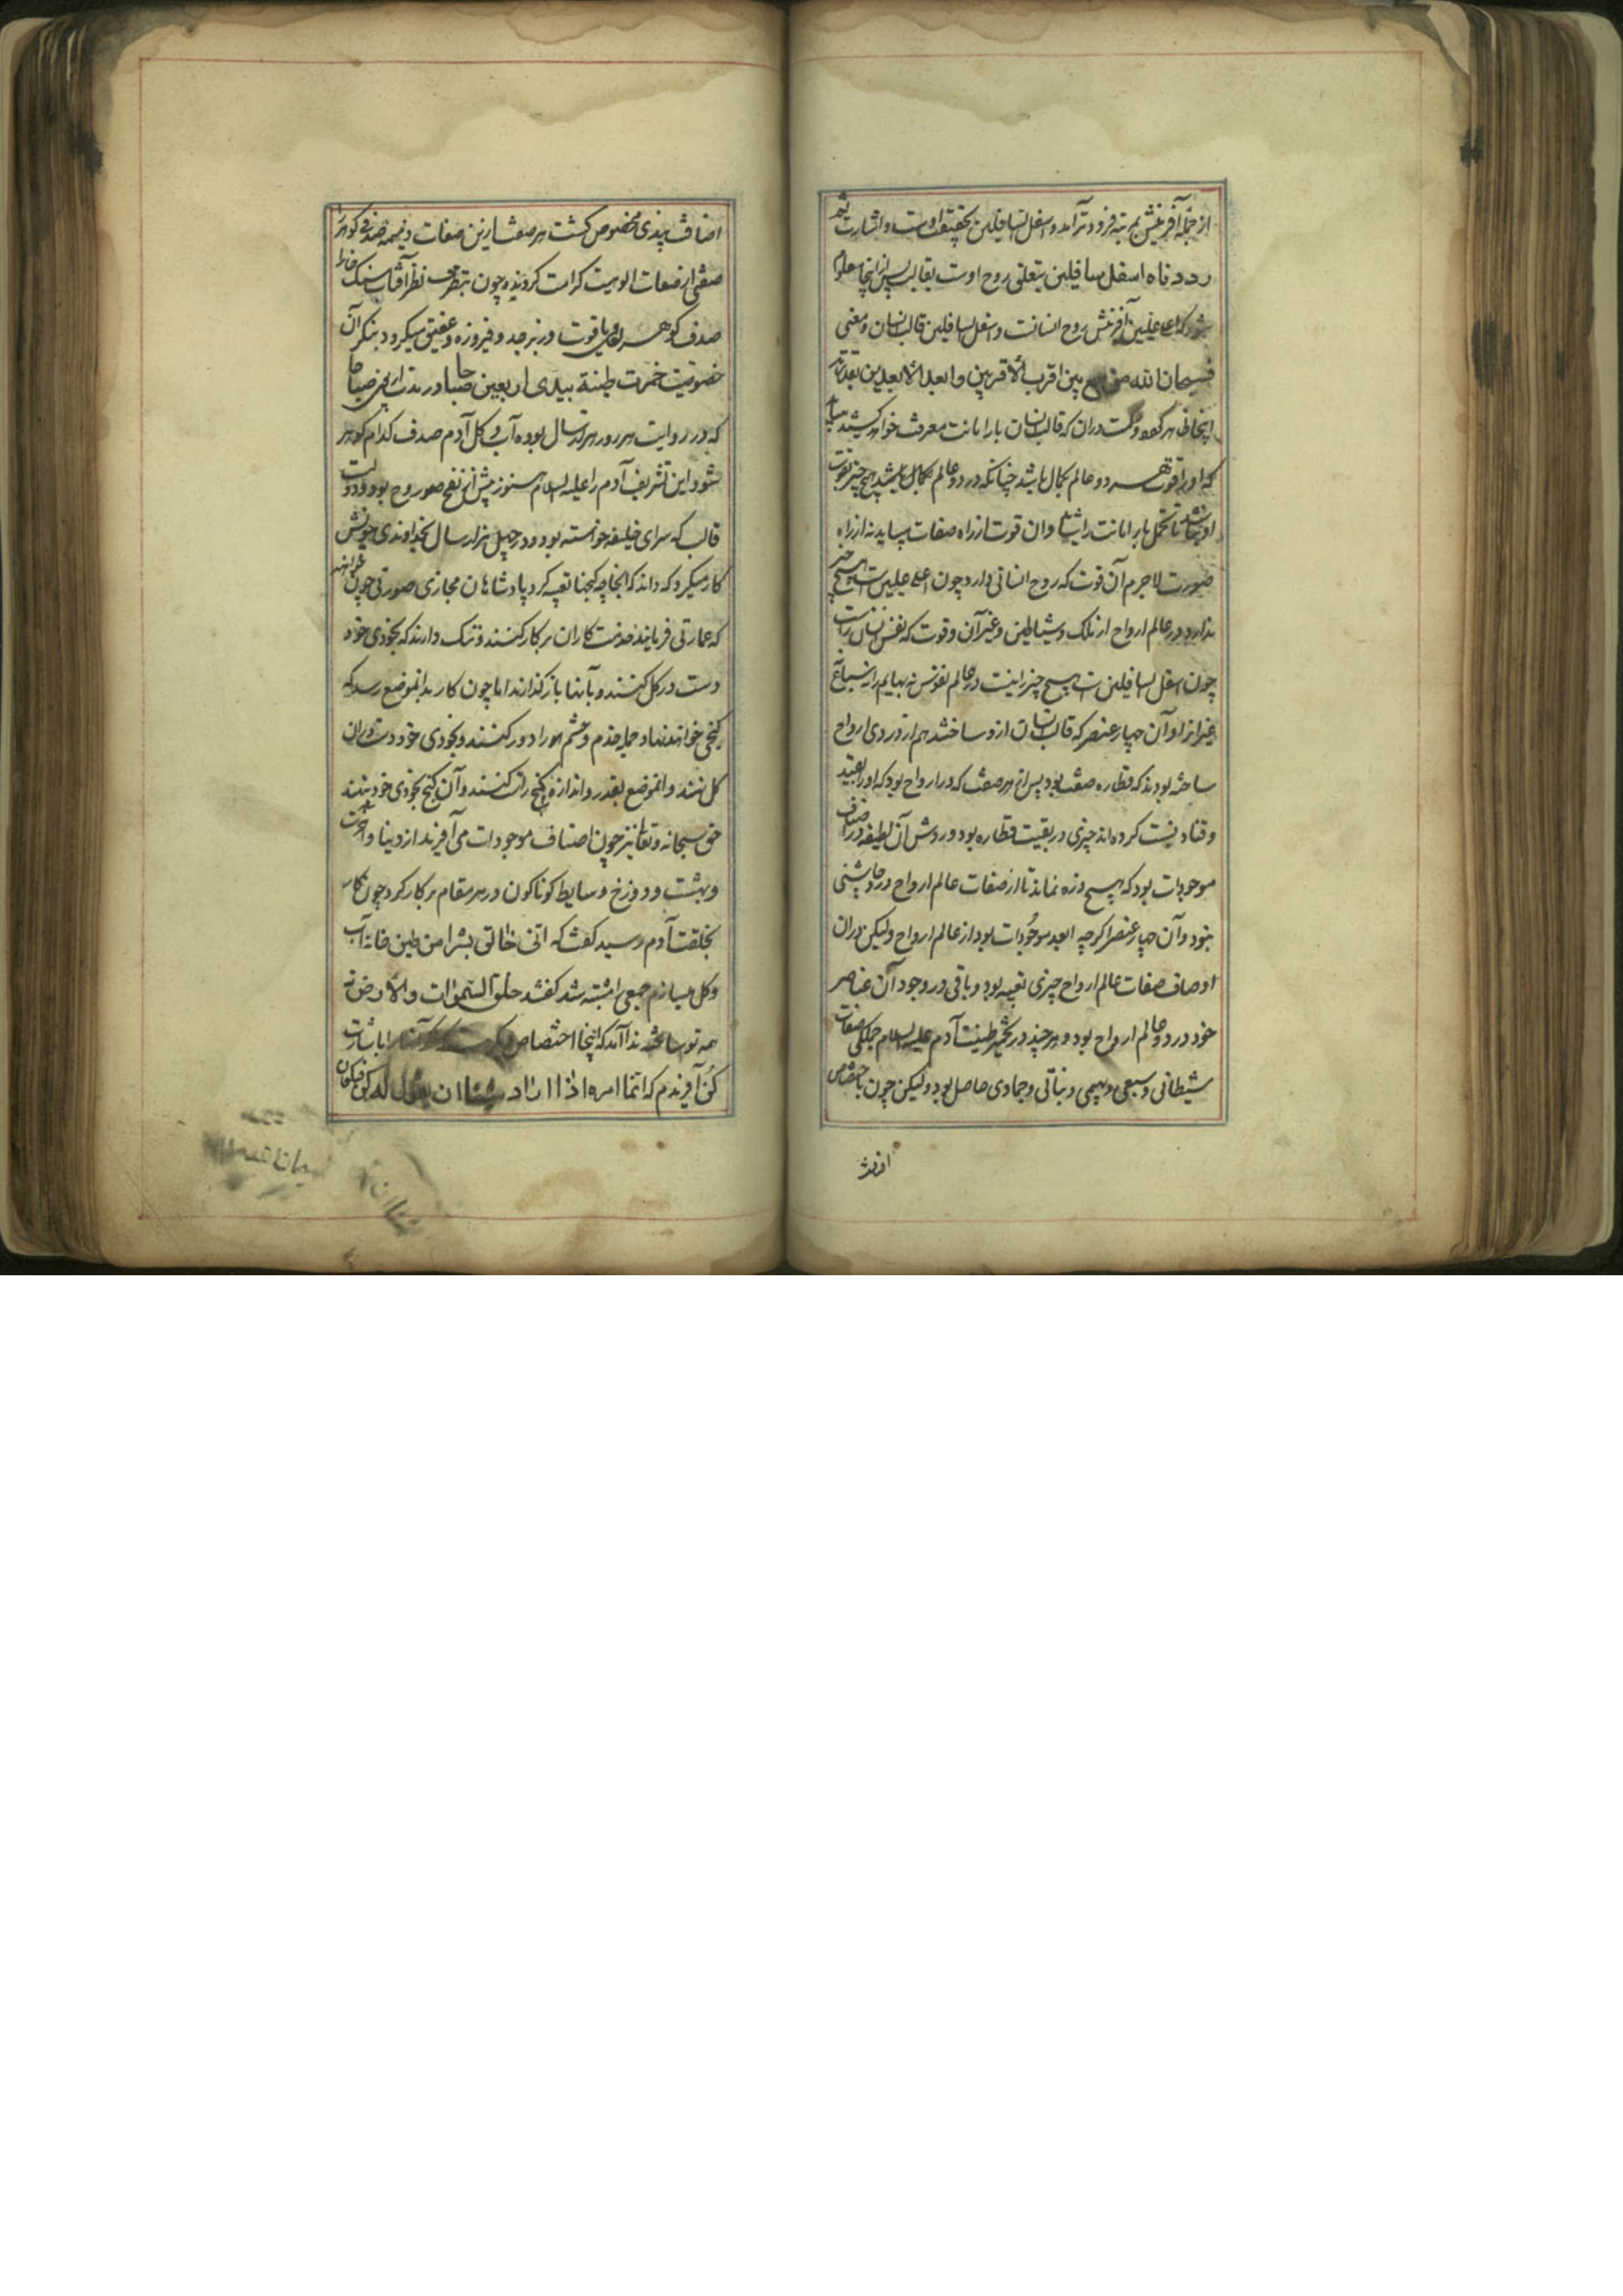 از جمله آفرینش بمرتبه فروتر آمد و اسفل السافلین بحقیقت اوست و اشارت ثم
رددناه اسفل سافلین بتعلق روح اوست بقالب پس از اینجا معلوم
شود که اعلی علیین آفرینش روح انسانست و اسفل السافلین قالب انسان و معنی
فسبحان الله من جمع بین اقرب الاقربین و ابعد الابعدین بقدرته
اینجا ظاهر گردد و حکمت دران که قالب انسان بار امانت معرفت خواهد کشید میباید
که او را قوت هر دو عالم بکمال باشد چنانکه در دو عالم بکمال باشد هیچ چیز بقوت
او نباشد تا تحمل بار امانت را شاید و ان قوت از راه صفات میباید نه از راه
صورت لاجرم آن قوت که روح انسانی دارد چون اعلی علیین است هیچ چیز
ندارد در عالم ارواح از ملک و شیاطین و غیر آن و قوت که نفس انسان راست
چون اسفل السافلین است هیچ چیز را نیست در عالم نفوس نه بهایم را نه سباع
غیر از او آن چهار عنصر که قالب انسان ازو ساختند هم از دردی ارواح
ساخته بودند که قطاره صفت بود پس از هر صفت که در ارواح بود که او را بقیتد
و قناد نیست کرده‌اند چیزی در بقیت قطاره بود و روش آن لطیفه در اصناف
موجودات بود که هیچ ذره نماند تا از صفات عالم ارواح درو چاشنی
نبود و آن چهار عنصر اگرچه ابعد موجودات بود از عالم ارواح ولیکن دران
اوصاف صفات عالم ارواح چیزی تعبیه بود و باقی در وجود آن عناصر
خود درد عالم ارواح بود و هر چند در تخمیر طینت آدم علیه السلام جملگی صفات
شیطانی و سبعی و بهیمی و نباتی و جمادی حاصل بود ولیکن چون باختصاص
اضافت بیدی مخصوص گشت هر صفت ازین صفات ذمیمه صدف گوهر
صفتی از صفات الوهیت کرامت گردید چون نظر آفتاب سنک خارا
صدف گوهر لعل و یاقوت و زبرجد و فیروزه و عقیق میگردد بنگر آن
خصوصیت خمرت طینة آدم بیدی اربعین صباحا در مدت اربعین صباحا
که در روایت هر روز هزار سال بوده آب و گل آدم صدف کدام گوهر
شود این تشریف آدم را علیه السلام هنوز پیش از نفخ صور روح بود و دولت
قالب که سرای خلیفه خواسته بود و در چهل هزار سال بخداوندی خویش
کار میکرد که داند که آنجا چه گنجها تعبیه کرد پادشاهان مجازی صورتی چون خواهند
که عمارتی فرمایند خدمت کاران بر کار کنند و ننگ دارند که بخودی خود
دست در گل کنند و بآنها باز گذارند اما چون کار بدانموضع رسد که
گنجی خواهند نهاد جمله خدم و حشم را دور کنند و بخودی خود دست دران
گل نهند و انموضع بقدر و اندازه گنج راست کنند و آن گنج بخودی خود بنهند
حق سبحانه و تعالی نیز چون اصناف موجودات می‌آفرید از دنیا و آخرت
و بهشت و دوزخ و سایط گوناگون در هر مقام بر کار کرد چون کار
بخلقت آدم رسید گفت که انی خالق بشرا من طین خانه آب
و گل میسازم جمعی را مشتبه شد گفتند خلق السموات والارض نه
همه تو ساختی ندا آمد که اینجا اختصاص دیگرست که آنها را باشارت
کن آفریدم که انما امره اذا اراد شیئا ان یقول له کن فیکون